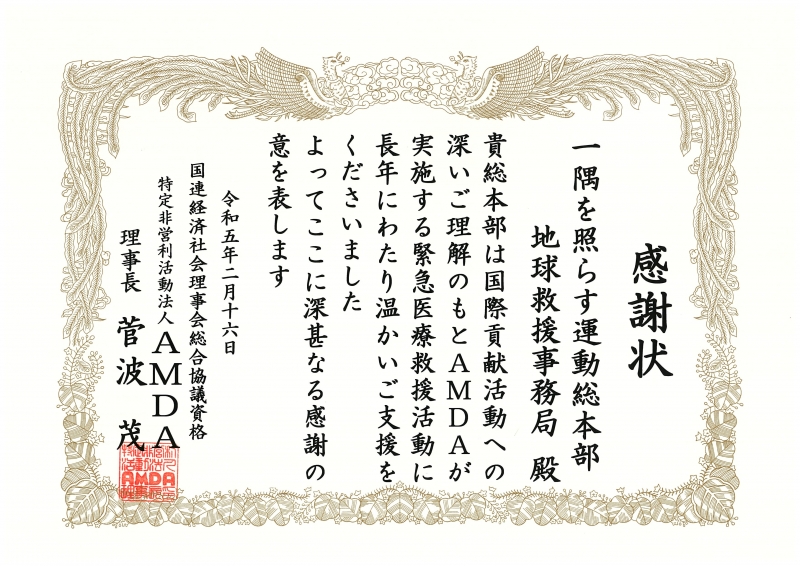 感謝状
一隅を照らす運動総本部
地球救援事務局 殿
貴総本部は国際貢献活動への
深いご理解のもとAMDAが
実施する緊急医療救援活動に
長年にわたり温かいご支援を
くださいました
よってここに深甚なる感謝の
意を表します
令和五年二月十六日
国連経済社会理事会総合協議資格
特定非営利活動法人AMDA
理事長 菅波 茂
AMDA